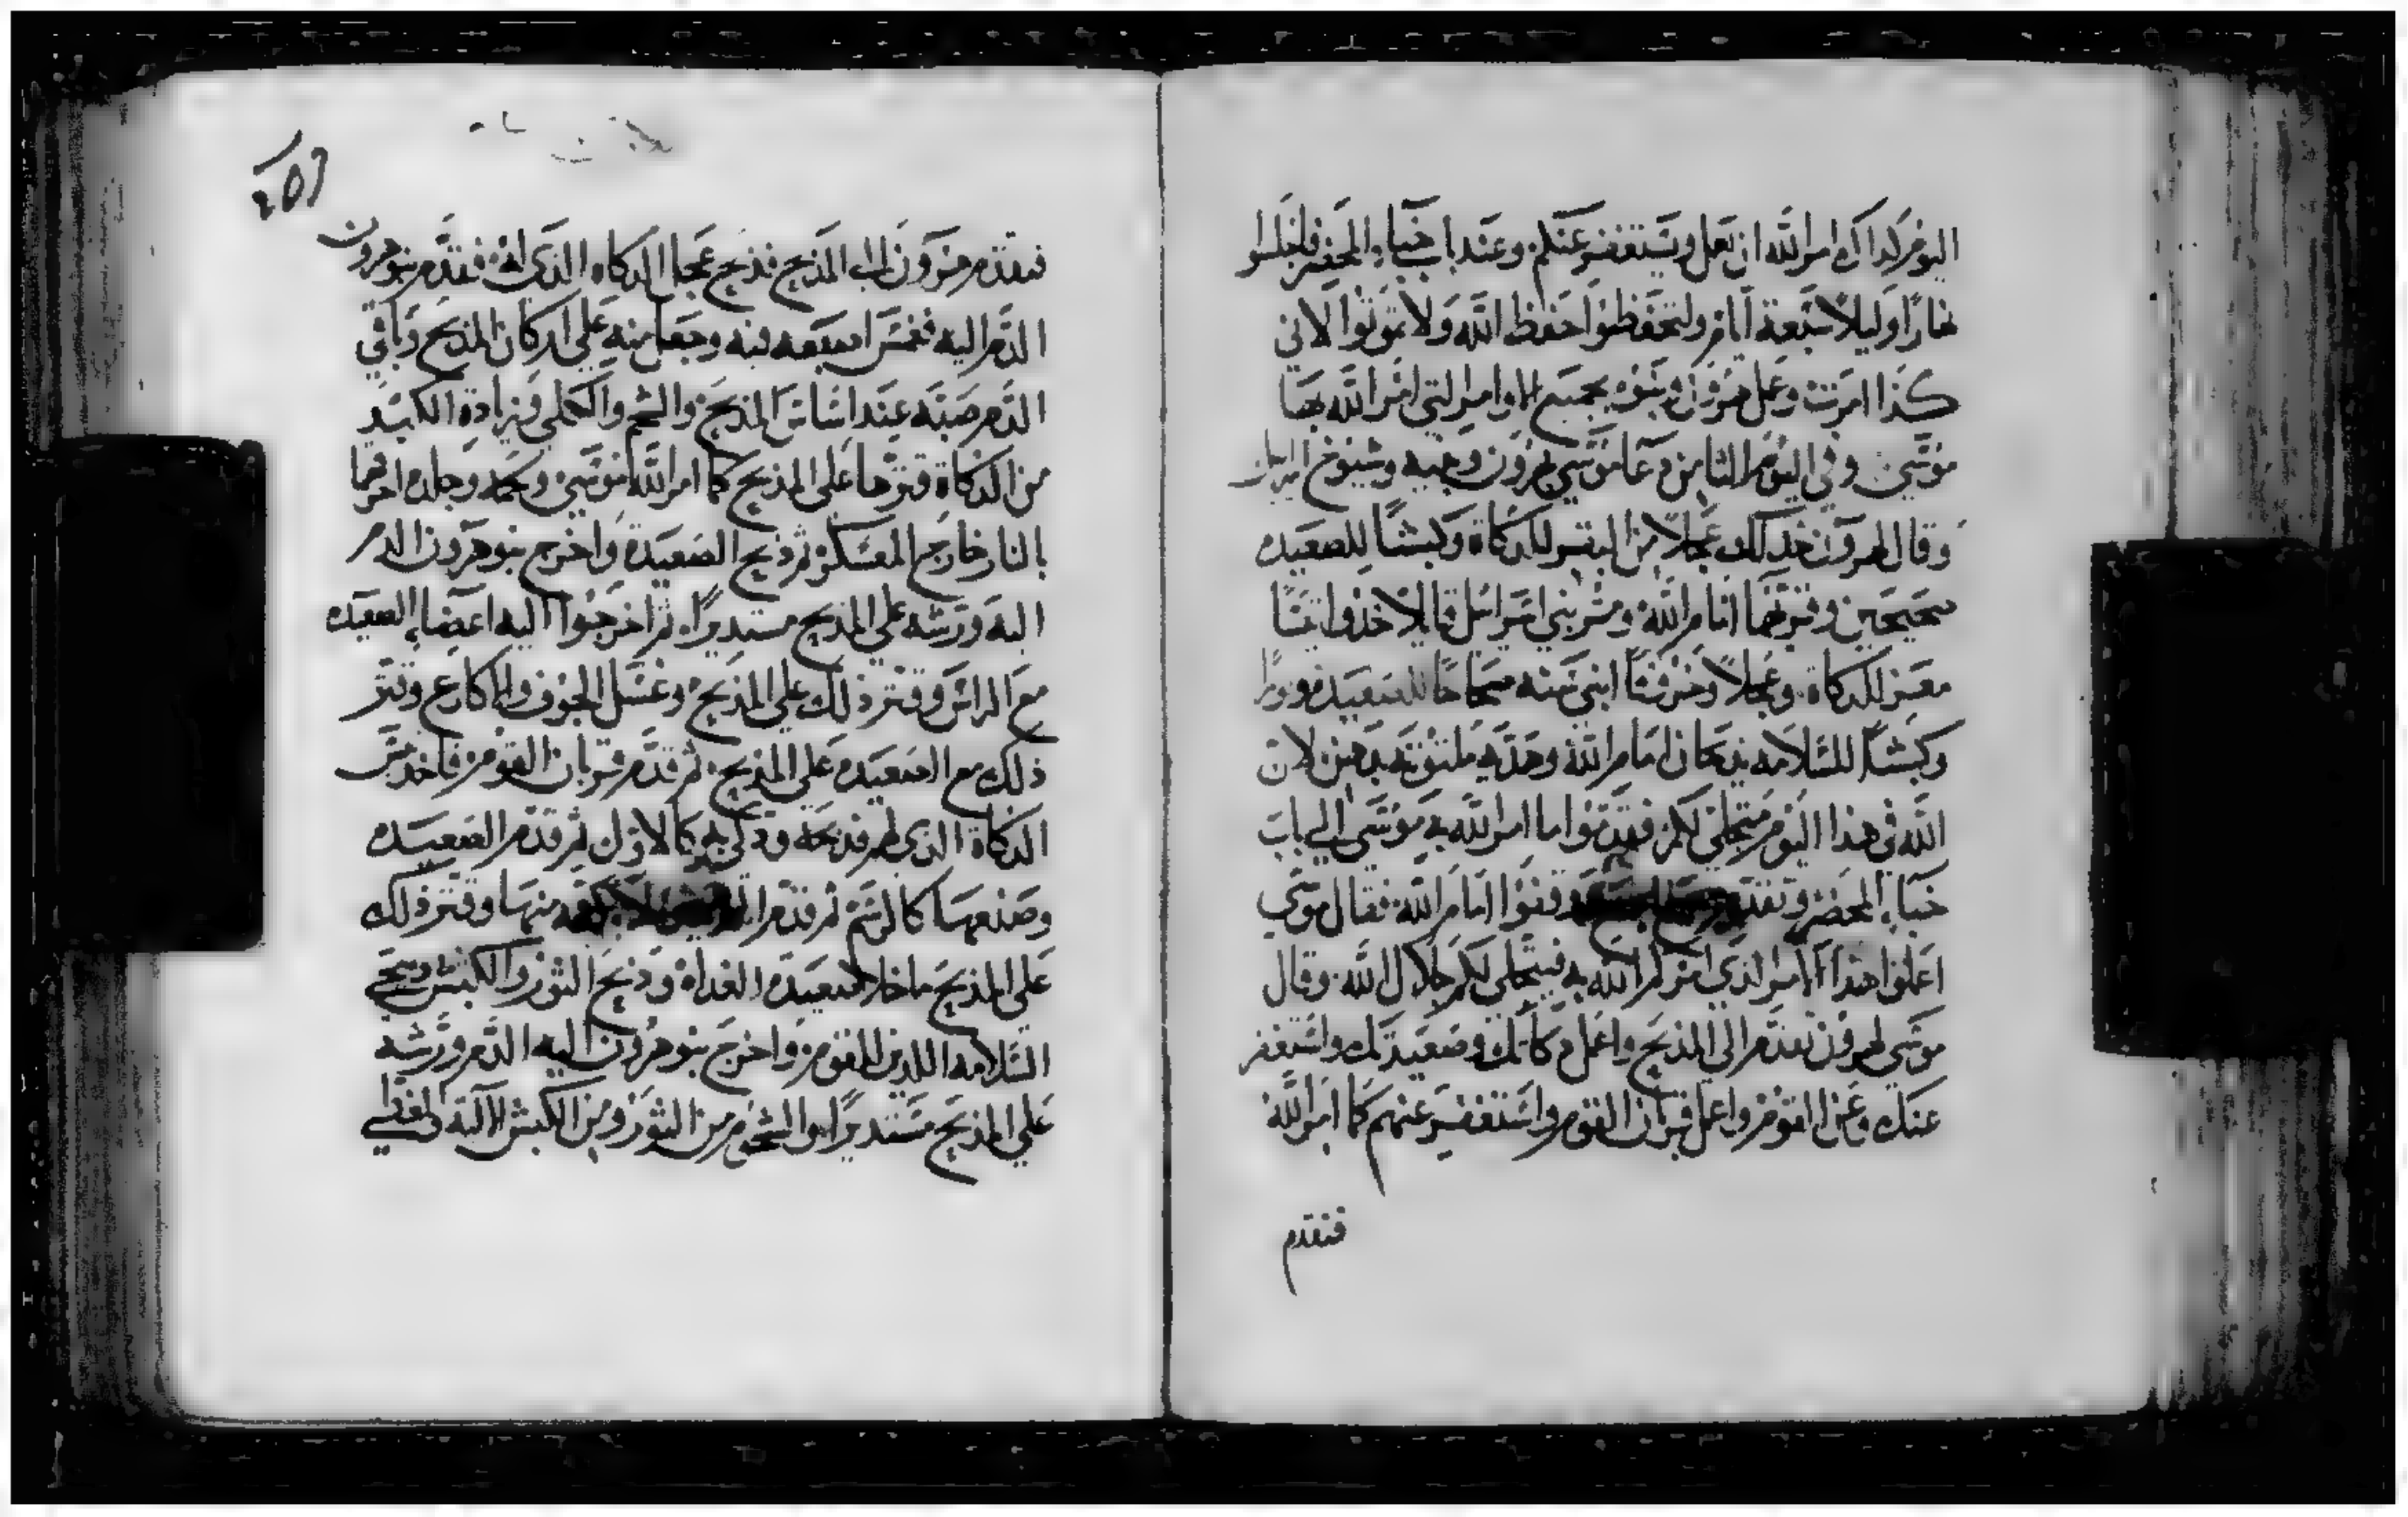 اليوم كداك امر الله ان نعمل ويستغفر عنكم وعند باب خباء المحضر فاجلسوا
نهارًا وليلاً سبعة ايام ولتحفظوا حفظ الله ولا تموتوا لاني
كذا امرت وعمل هرون وبنوه بجميع الاوامر التي امر الله بها
موسى وفي اليوم الثامن دعا موسى بهرون وبنيه وشيوخ اسرايل
وقال لهرون خد لك عجلاً من البقر للدكاة وكبشًا للصعيده
صحيحين وقربهما امام الله ومر بني اسرايل قايلا خذوا تيسًا
من المعز للدكاة وعجلاً وخروفًا ابني سنه صحاحًا للصعيده وثورًا
وكبشًا للسلامه يدبحان امام الله وهديه ملتوته بدهن لان
الله في هذا اليوم متجلي لكم فقدموا ما امر الله به موسى الى باب
خباء المحضر وتقدم ووقفوا امام الله فقال موسى
اعملوا هذا الامر الذي امركم الله به فيتجلى لكم جلال الله وقال
موسى لهرون تقدم الى المذبح واعمل دكاتك وصعيدتك واستغفر
عنك وعن القوم واعمل قربان القوم واستغفر عنهم كما امر الله
فتقدم
فتقدم هرون الى المذبح فذبح عجل الدكاه الذي له فقدم بنو هرون
الدم اليه فغمس اصبعه فيه وجعل منه على اركان المذبح وباقي
الدم صبه عند اساس المذبح والشحم والكلى وزيادة الكبد
من الدكاة قترها على المذبح كما امر الله موسى ولحمه وجلده احرقهما
بالنار خارج المعسكر ثم ذبح الصعيدة واخرج بنو هرون الدم
اليه ورشه على المذبح مستديرًا ثم اخرجوا اليه اعضاء الصعيده
مع الراس وقتر ذلك على المذبح وغسل الجوف والاكارع وقتر
ذلك مع الصعيده على المذبح ثم قدم قربان القوم فاخد تيس
الدكاة الذي لهم فدبحه كالاول ثم قدم الصعيده
وصنعها كالرسم ثم قدم منها وقتر ذلك
على المذبح ماخلا صعيدة الغداة وذبح الثور والكبش ذبح
السلامه اللدين للقوم واخرج بنو هرون اليه الدم ورشه
على المذبح مستديرًا والشحوم من الثور ومن الكبش الالية